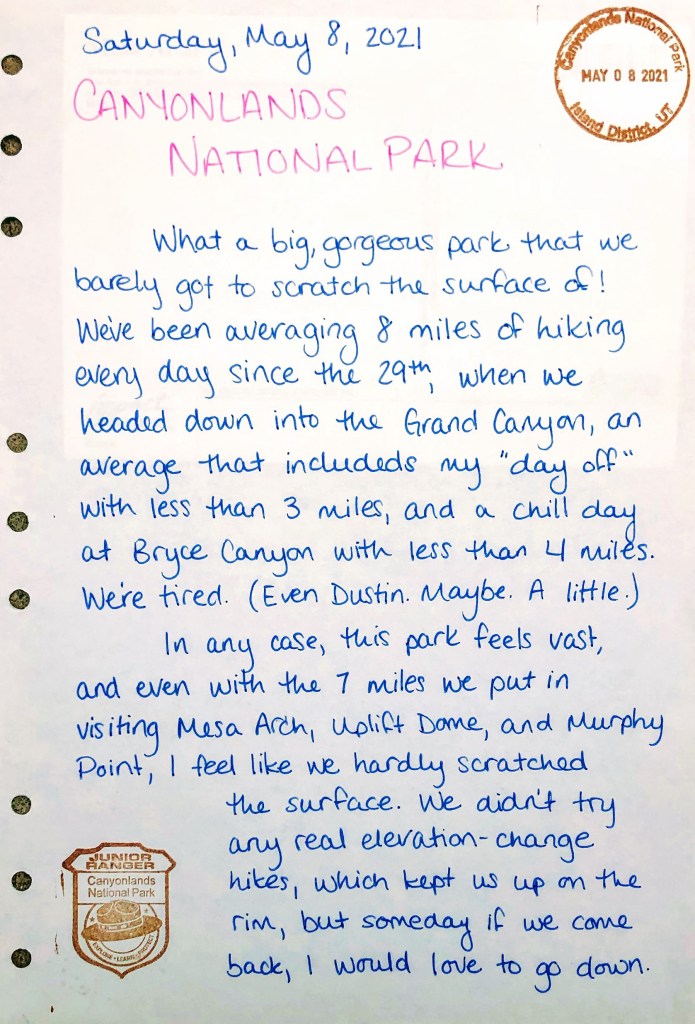 Saturday, May 8, 2021
Canyonlands National Park
MAY 08 2021
Island District, UT
CANYONLANDS
NATIONAL PARK
What a big, gorgeous park that we
barely got to scratch the surface of!
We've been averaging 8 miles of hiking
every day since the 29th, when we
headed down into the Grand Canyon, an
average that includeds my "day off"
with less than 3 miles, and a chill day
at Bryce Canyon with less than 4 miles.
We're tired. (Even Dustin. Maybe. A little.)
In any case, this park feels vast,
and even with the 7 miles we put in
visiting Mesa Arch, Uplift Dome, and Murphy
Point, I feel like we hardly scratched
the surface. We didn't try
any real elevation-change
hikes, which kept us up on the
rim, but someday if we come
back, I would love to go down.
JUNIOR
RANGER
Canyonlands
National Park
EXPLORE • LEARN • PROTECT